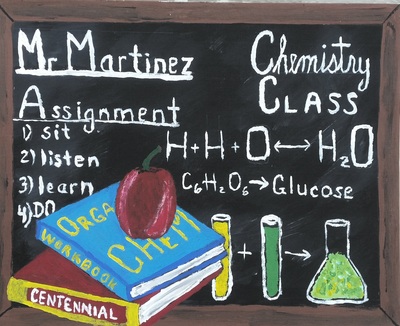 Mr Martinez
Chemistry
CLASS
Assignment
1) sit
2) listen
3) learn
4) DO
H+H+O↔H₂O
C₆H₂O₆→Glucose
ORGA
CHEM
WORKBOOK
+ →
CENTENNIAL